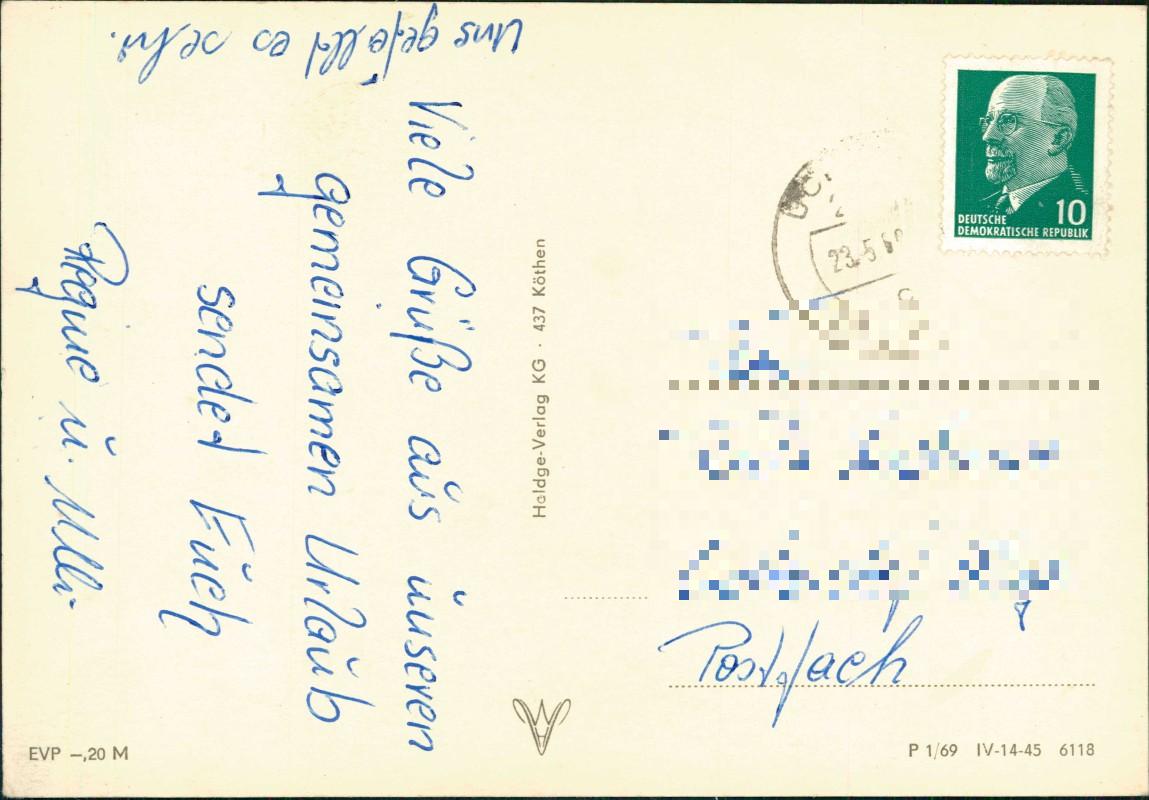 Viele Grüße aus unseren
gemeinsamen Urlaub
sendet Euch
Regine u. Ulli
Uns gefällt es sehr.
Haldge-Verlag KG · 437 Köthen
10
DEUTSCHE
DEMOKRATISCHE REPUBLIK
23.5.69
Postfach
EVP –,20 M
P 1/69 IV-14-45 6118